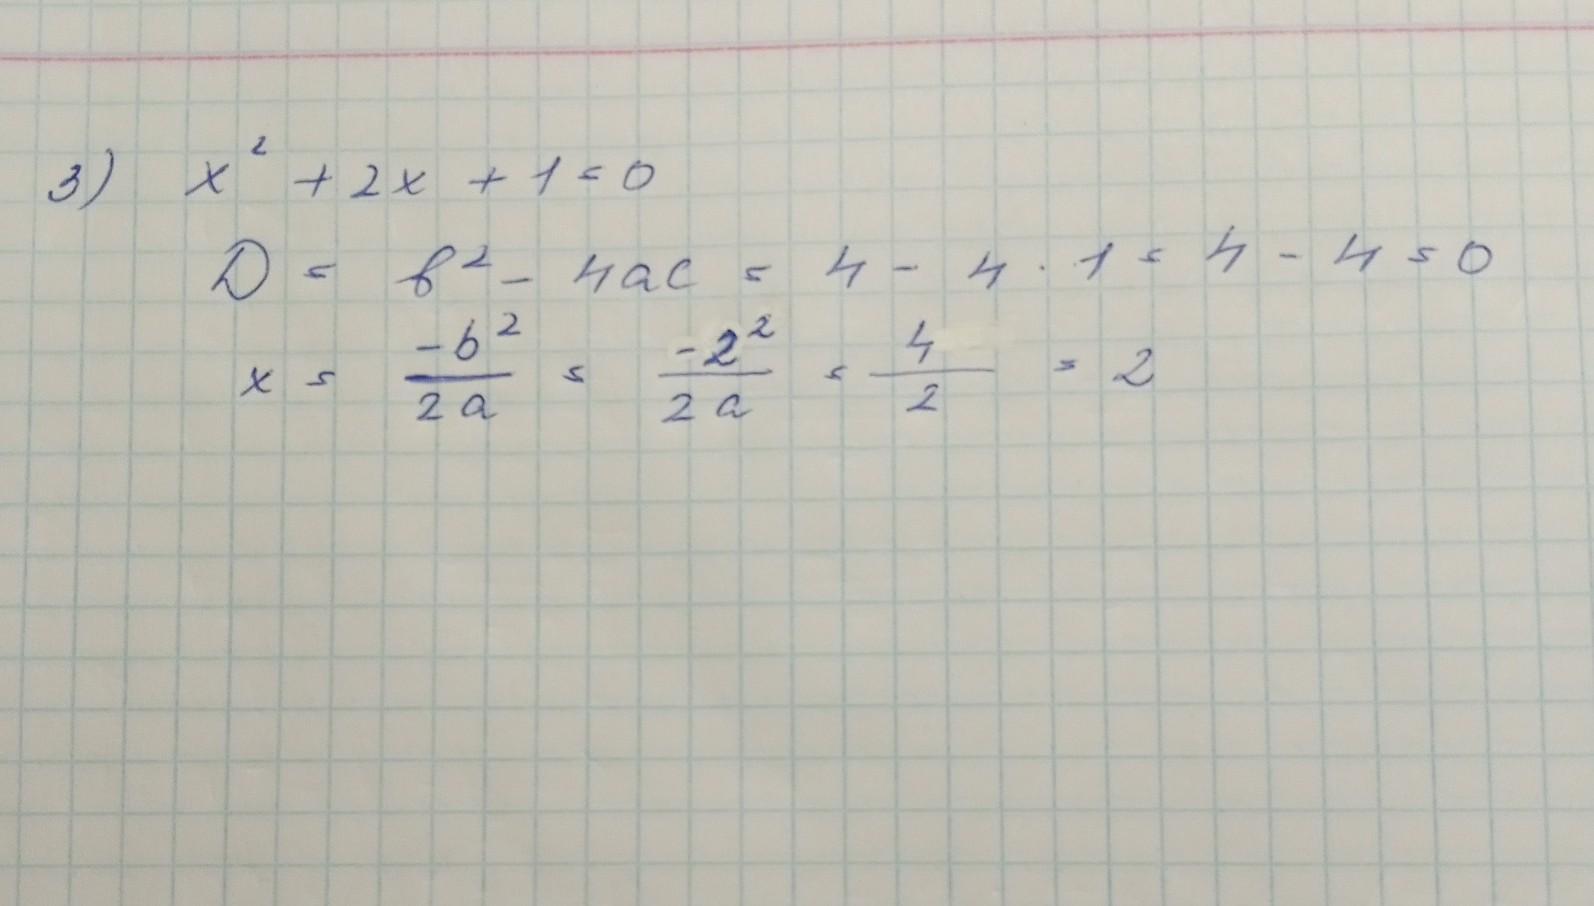 3) x² + 2x + 1 = 0
D = b² - 4ac = 4 - 4 · 1 = 4 - 4 = 0
x = -b²/2a = -2²/2a = 4/2 = 2